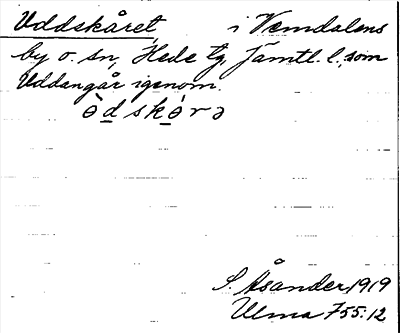 Uddskåret i Vemdalens
by o. sn, Hede tg, Jämtl. l., som
Uddangår igenom.
ə̀d skə́rə
S. Åsander 1919
Ulma 755:12